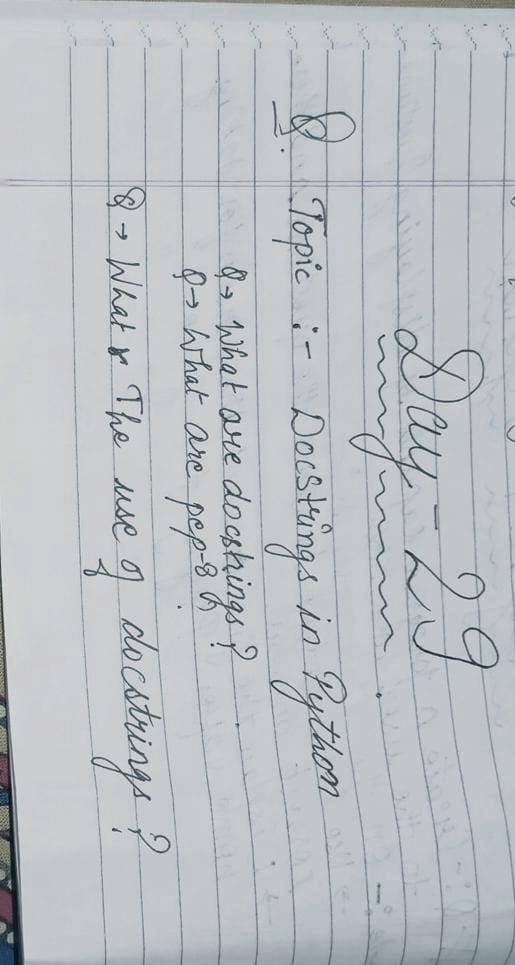 Day - 29
Q. Topic :- Docstrings in Python
Q → What are docstrings?
Q → What are pep-8
Q → What The use of docstrings?